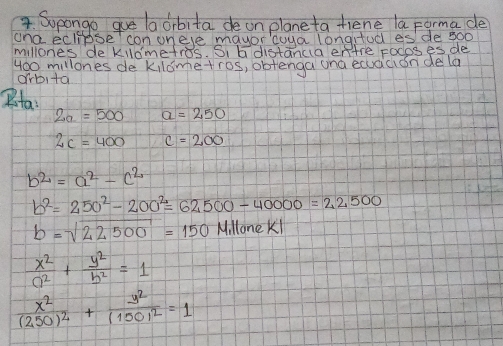 7. Supongo que la órbita de un planeta tiene la forma de
una eclipse con un eje mayor cuya longitud es de 500
millones de kilómetros. Si la distancia entre focos es de
400 millones de kilómetros, obtenga una ecuación de la
órbita
Rta:
2a = 500 a = 250
2c = 400 c = 200
b² = a² - c²
b² = 250² - 200² = 62,500 - 40000 = 22,500
b = √22 500 = 150 Millone Kl
x²/a² + y²/b² = 1
x²/(250)² + y²/(150)² = 1